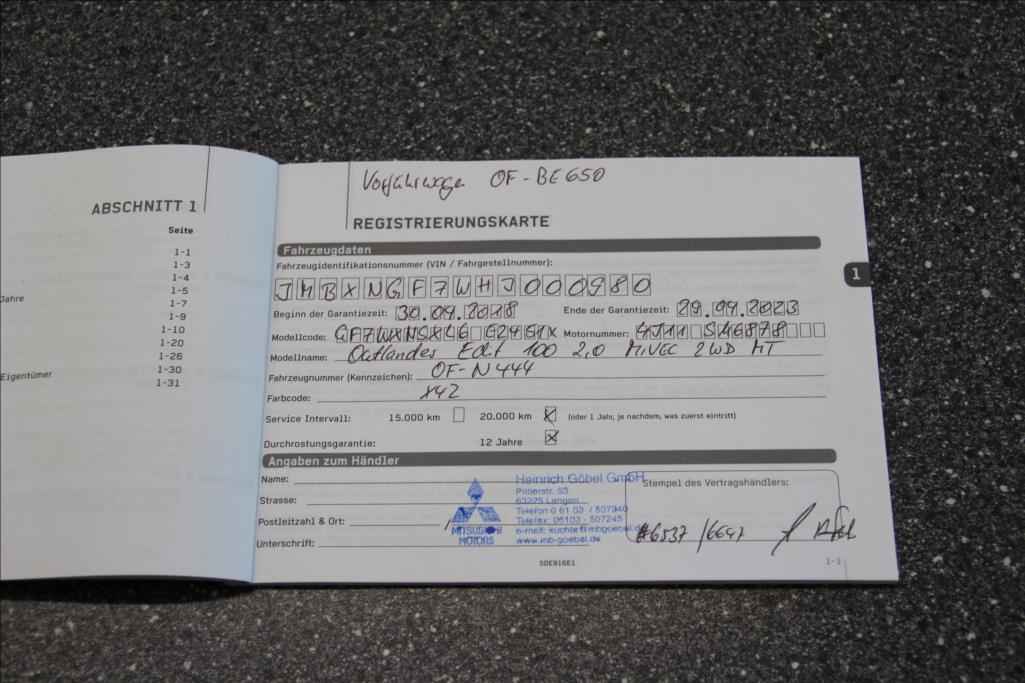 ABSCHNITT 1
Seite
1-1
1-3
1-4
Jahre 1-5
1-7
1-9
1-10
1-20
1-26
Eigentümer 1-30
1-31
Vorführwagen OF-BE650
REGISTRIERUNGSKARTE
1
Fahrzeugdaten
Fahrzeugidentifikationsnummer (VIN / Fahrgestellnummer):
JMBXNGF7WHJ000980
Beginn der Garantiezeit: 30.09.2018 Ende der Garantiezeit: 29.09.2023
Modellcode: Motornummer: 4J11 S46878
Modellname: Outlander Edit 100 2,0 MIVEC 2WD MT
Fahrzeugnummer (Kennzeichen): OF-N444
Farbcode: X42
Service Intervall: 15.000 km 20.000 km (oder 1 Jahr, je nachdem, was zuerst eintritt)
Durchrostungsgarantie: 12 Jahre
Angaben zum Händler
Name:
Strasse:
Postleitzahl & Ort:
Unterschrift:
MITSUBISHI
MOTORS
Heinrich Göbel GmbH
Pittlerstr. 53
63225 Langen
Telefon 0 61 03 / 507240
Telefax: 06103 - 507245
e-mail: kuchta@mbgoebel.de
www.mb-goebel.de
Stempel des Vertragshändlers:
#6537 /6647
SDE916E1
1-1